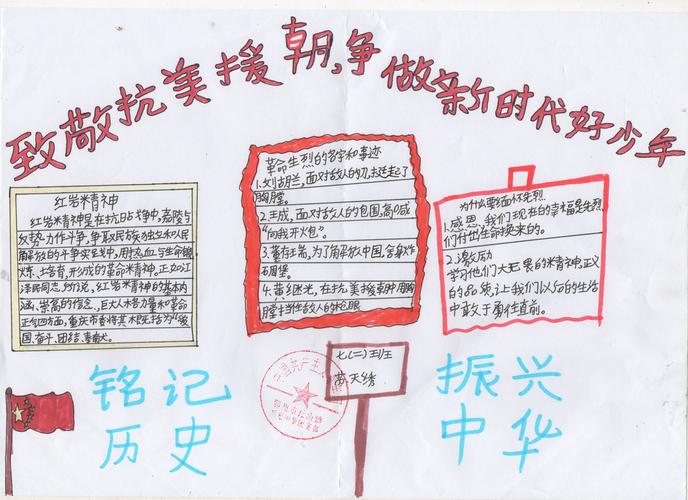 致敬抗美援朝,争做新时代好少年
红岩精神
红岩精神是在抗日战争中,嘉陵与
反势力作斗争,争取民族独立和人民
解放的斗争实践中,用热血与生命锻
炼、培育,形成的革命精神,正如江
泽民同志所说,红岩精神的基本内
涵、崇高的信念、巨大人格力量和革命
正气四方面,重庆市委将其概括为“爱
国、奋斗、团结、奉献。
革命先烈的名字和事迹
1.刘胡兰,面对敌人的刀,挺起了
胸膛。
2.王成,面对敌人的包围,高喊
“向我开火包”。
3.董存瑞,为了解放中国,舍身炸
石周堡。
4.黄继光,在抗美援朝时,用胸
膛挡住敌人的枪眼
为什么要缅怀先烈
1.感恩、我们现在的幸福是先烈
们付出生命换来的。
2.激励
学习他们大无畏的精神,正义
的品质,让我们以后的生活
中敢于勇往直前。
七(二)班
苗天绣
铭记
历史
振兴
中华